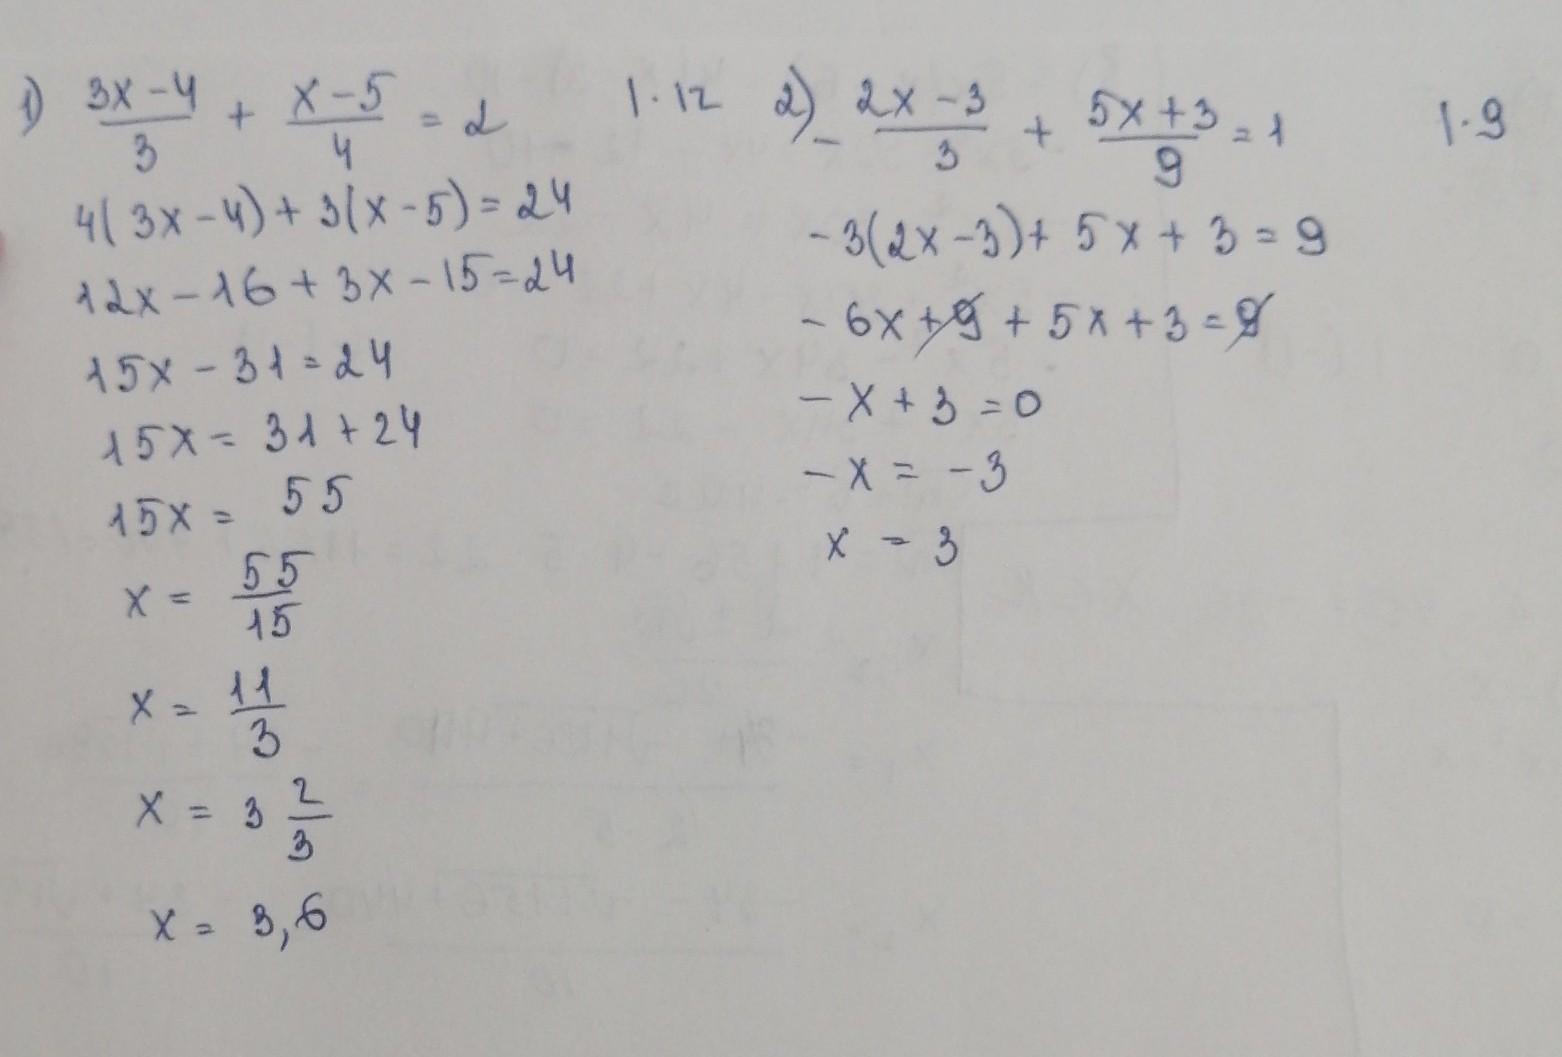 1) (3x-4)/3 + (x-5)/4 = 2 |·12
4(3x-4)+3(x-5)=24
12x-16+3x-15=24
15x-31=24
15x=31+24
15x=55
x=55/15
x=11/3
x=3 2/3
x=3,6
2) -(2x-3)/3 + (5x+3)/9 = 1 |·9
-3(2x-3)+5x+3=9
-6x+9+5x+3=9
-x+3=0
-x=-3
x=3